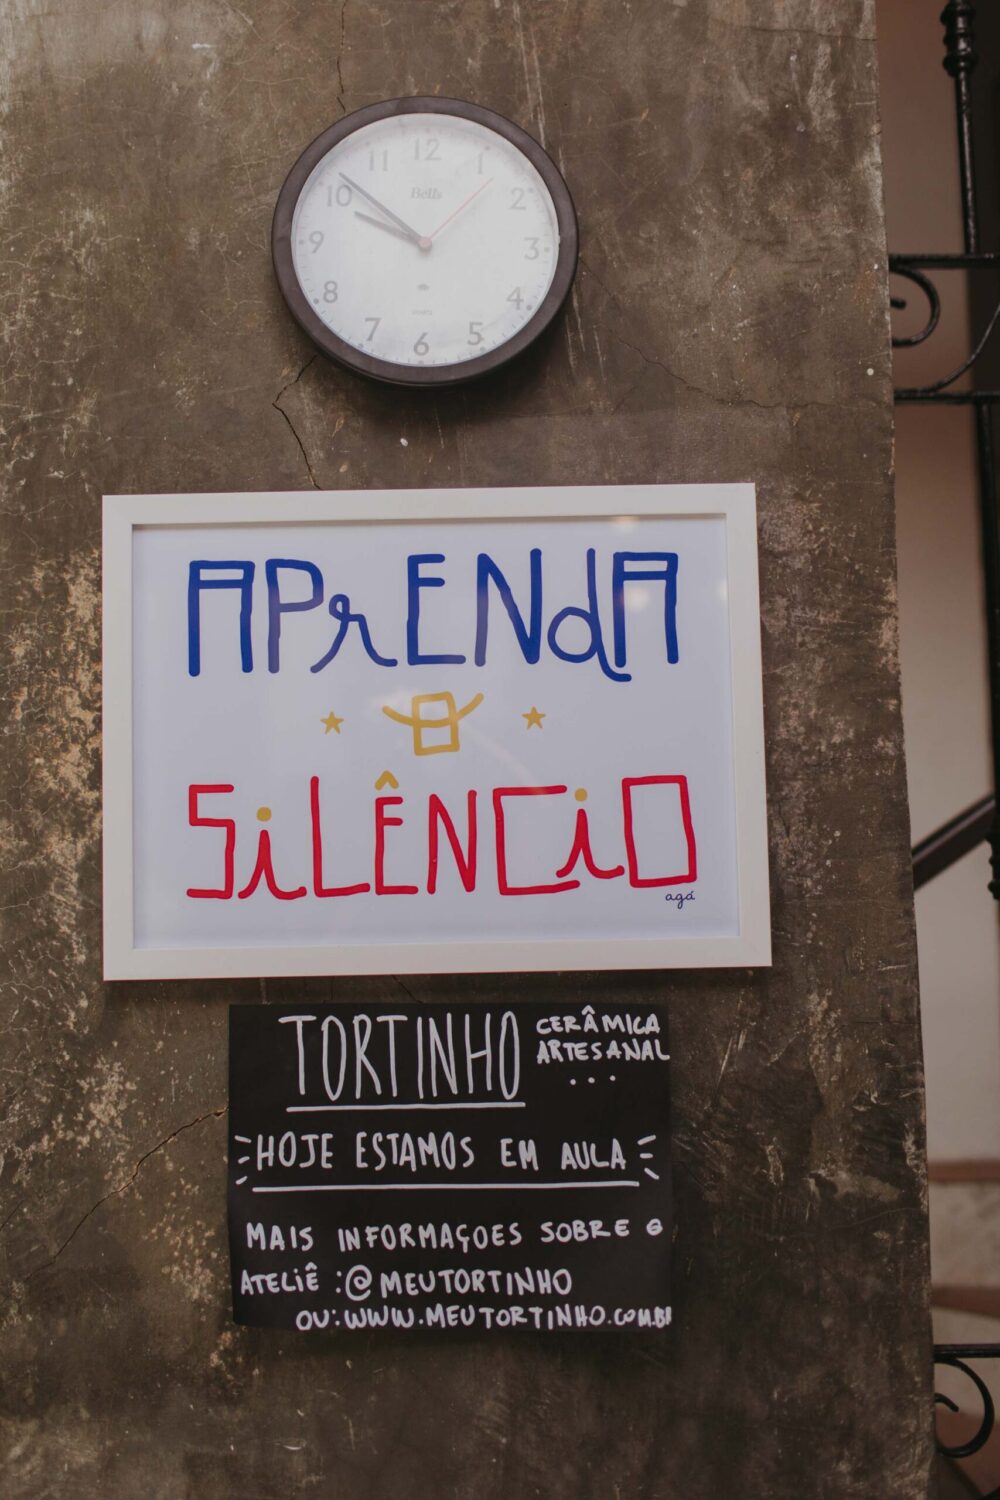 12
11 1
10 Bells 2
9 3
8 4
7 5
6
APrENdA
O
SiLÊNCiO
agá
TORTINHO CERÂMICA
ARTESANAL
...
HOJE ESTAMOS EM AULA
MAIS INFORMAÇOES SOBRE O
ATELIÊ :@MEUTORTINHO
OU:WWW.MEUTORTINHO.COM.BR